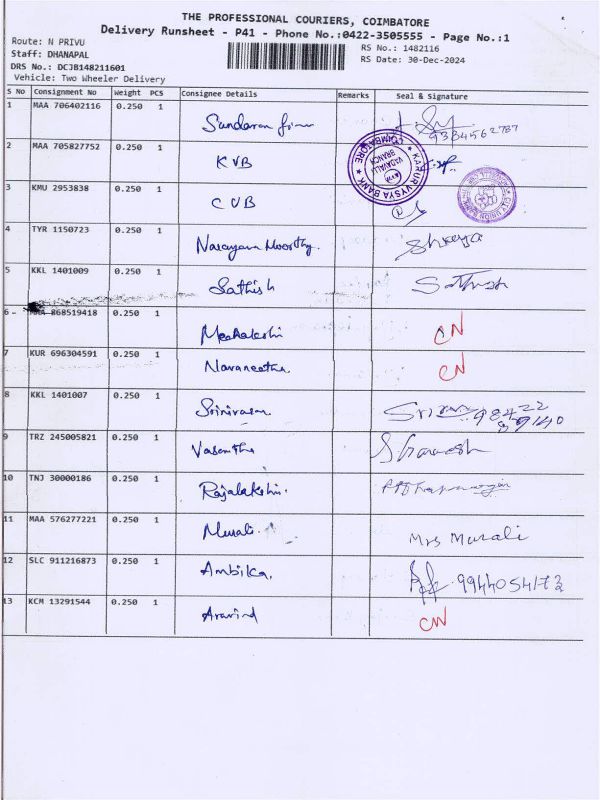 THE PROFESSIONAL COURIERS, COIMBATORE
Delivery Runsheet - P41 - Phone No.:0422-3505555 - Page No.:1
Route: N PRIVU
RS No.: 1482116
Staff: DHANAPAL
RS Date: 30-Dec-2024
DRS No.: DCJB148211601
Vehicle: Two Wheeler Delivery
S No Consignment No Weight PCS Consignee Details Remarks Seal & Signature
1 MAA 706402116 0.250 1 Sundaran 9384562787
2 MAA 705827752 0.250 1 KVB
KARUR VYSYA BANK COIMBATORE VADAVALLI BRANCH
3 KMU 2953838 0.250 1 CUB
CITY UNION BANK
4 TYR 1150723 0.250 1 Narayana Moorthy. Shreya
5 KKL 1401009 0.250 1 Sathish Sathish
6 MAA 868519418 0.250 1 Meenakshi CN
7 KUR 696304591 0.250 1 Navaneetha CN
8 KKL 1401007 0.250 1 Srinivasan 98422
9 TRZ 245005821 0.250 1 Vasantha
10 TNJ 30000186 0.250 1 Rajalakshmi.
11 MAA 576277221 0.250 1 Murali. Mrs Murali
12 SLC 911216873 0.250 1 Ambika. 9944054173
13 KCM 13291544 0.250 1 Aravind CN